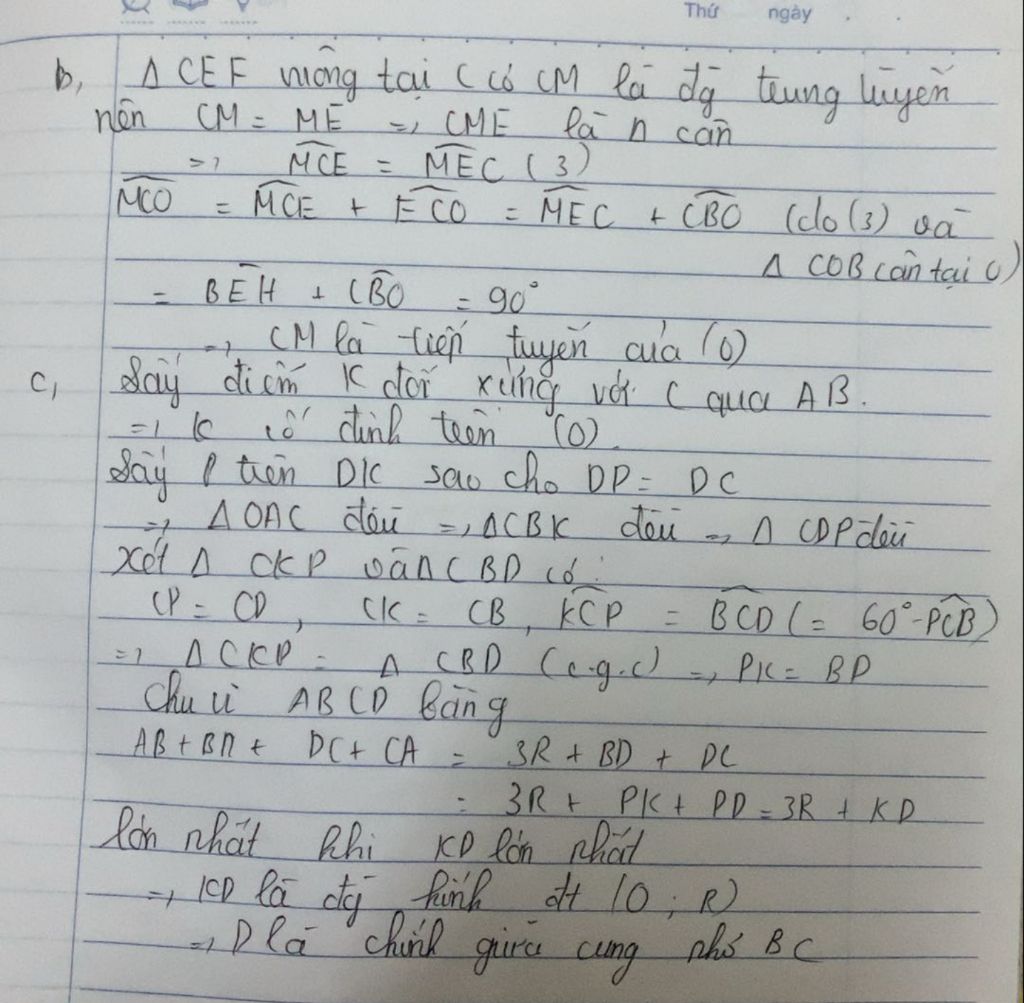 Thứ ngày . .
b, Δ CEF vuông tại C có CM là đg trung tuyến
nên CM = ME => CME là Δ cân
=> MCE = MEC (3)
MCO = MCE + ECO = MEC + CBO (do (3) và
Δ COB cân tại O)
= BEH + CBO = 90°
=> CM là tiếp tuyến của (O)
c, Lấy điểm K đối xứng với C qua AB.
=> K cố định trên (O).
Lấy P trên DK sao cho DP = DC
=> Δ OAC đều => Δ CBK đều => Δ CDP đều
Xét Δ CKP và Δ CBD có:
CP = CD, CK = CB, KCP = BCD (= 60° - PCB)
=> Δ CKP = Δ CBD (c.g.c) => PK = BD
Chu vi ABCD bằng
AB + BD + DC + CA = 3R + BD + DC
= 3R + PK + PD = 3R + KD
lớn nhất khi KD lớn nhất
=> KD là đg kính đt (O; R)
=> D là chính giữa cung nhỏ BC